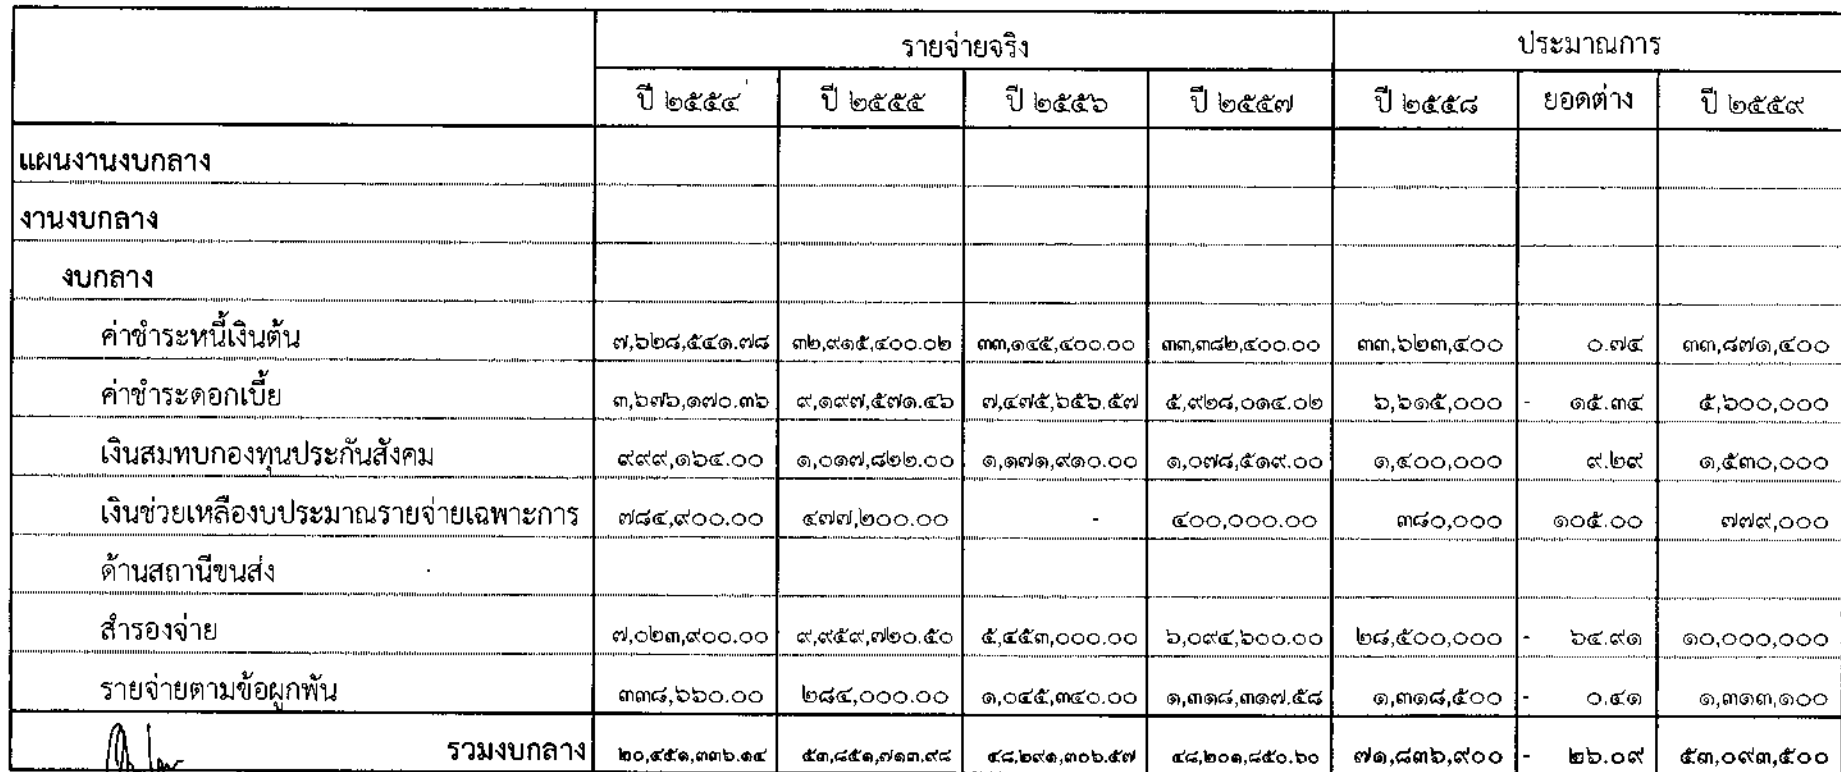 รายจ่ายจริง ประมาณการ
ปี ๒๕๕๔ ปี ๒๕๕๕ ปี ๒๕๕๖ ปี ๒๕๕๗ ปี ๒๕๕๘ ยอดต่าง ปี ๒๕๕๙
แผนงานงบกลาง
งานงบกลาง
งบกลาง
ค่าชำระหนี้เงินต้น ๗,๖๒๘,๕๔๑.๗๘ ๓๒,๙๑๕,๔๐๐.๐๒ ๓๓,๑๔๕,๔๐๐.๐๐ ๓๓,๓๘๒,๔๐๐.๐๐ ๓๓,๖๒๓,๔๐๐ ๐.๗๔ ๓๓,๘๗๑,๔๐๐
ค่าชำระดอกเบี้ย ๓,๖๗๖,๑๗๐.๓๖ ๙,๑๙๗,๕๗๑.๔๖ ๗,๔๗๕,๖๕๖.๕๗ ๕,๙๒๘,๐๑๔.๐๒ ๖,๖๑๕,๐๐๐ - ๑๕.๓๔ ๕,๖๐๐,๐๐๐
เงินสมทบกองทุนประกันสังคม ๙๙๙,๑๖๔.๐๐ ๑,๐๑๗,๘๒๒.๐๐ ๑,๑๗๑,๙๑๐.๐๐ ๑,๐๗๘,๕๑๙.๐๐ ๑,๔๐๐,๐๐๐ ๙.๒๙ ๑,๕๓๐,๐๐๐
เงินช่วยเหลืองบประมาณรายจ่ายเฉพาะการ ๗๘๔,๙๐๐.๐๐ ๔๗๗,๒๐๐.๐๐ - ๔๐๐,๐๐๐.๐๐ ๓๘๐,๐๐๐ ๑๐๕.๐๐ ๗๗๙,๐๐๐
ด้านสถานีขนส่ง
สำรองจ่าย ๗,๐๒๓,๙๐๐.๐๐ ๙,๙๕๙,๗๒๐.๕๐ ๕,๔๕๓,๐๐๐.๐๐ ๖,๐๙๔,๖๐๐.๐๐ ๒๘,๕๐๐,๐๐๐ - ๖๔.๙๑ ๑๐,๐๐๐,๐๐๐
รายจ่ายตามข้อผูกพัน ๓๓๘,๖๖๐.๐๐ ๒๘๔,๐๐๐.๐๐ ๑,๐๔๕,๓๔๐.๐๐ ๑,๓๑๘,๓๑๗.๕๘ ๑,๓๑๘,๕๐๐ - ๐.๔๑ ๑,๓๑๓,๑๐๐
รวมงบกลาง ๒๐,๔๕๑,๓๓๖.๑๔ ๕๓,๘๕๑,๗๑๓.๙๘ ๔๘,๒๙๑,๓๐๖.๕๗ ๔๘,๒๐๑,๘๕๐.๖๐ ๗๑,๘๓๖,๙๐๐ - ๒๖.๐๙ ๕๓,๐๙๓,๕๐๐